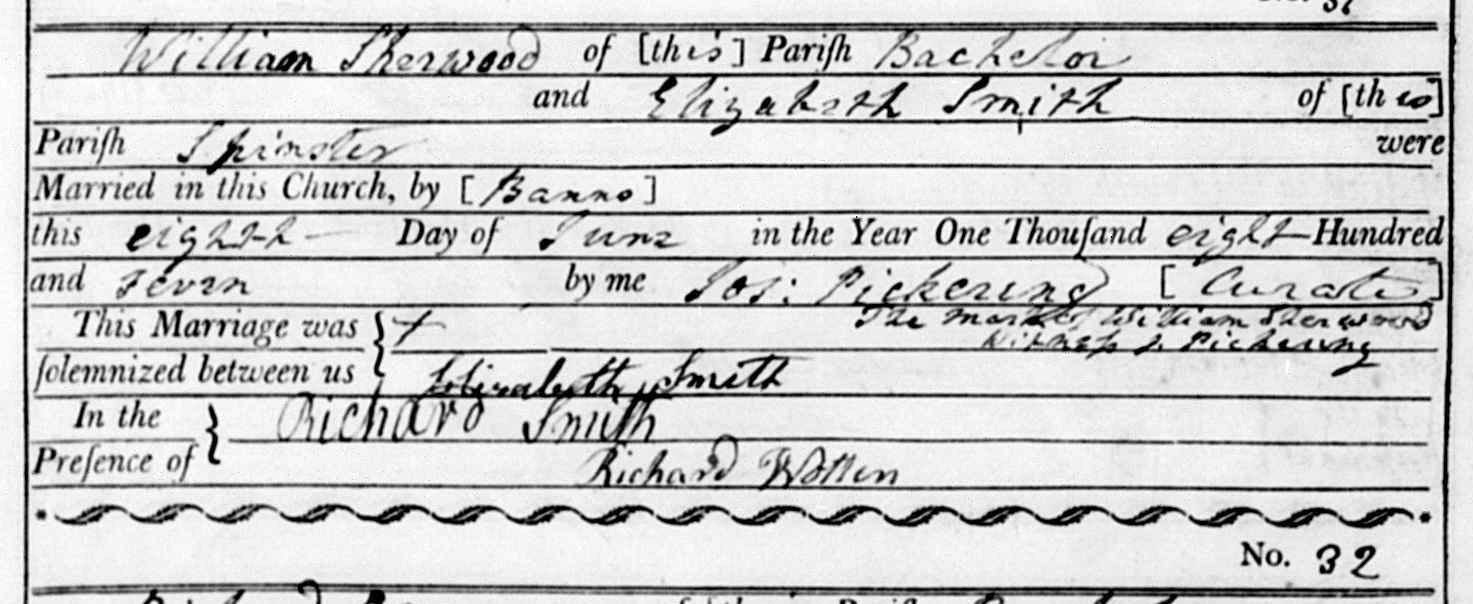 William Sherwood of [this] Pariſh Bachelor
and Elizabeth Smith of [this]
Pariſh Spinster were
Married in this Church, by [Banns]
this eighth Day of June in the Year One Thouſand eight Hundred
and seven by me Jos: Pickering [Curate]
This Marriage was { X The mark of William Sherwood
Witness J. Pickering
ſolemnized between us Elizabeth Smith
In the } Richard Smith
Preſence of Richard Wotten
No. 32